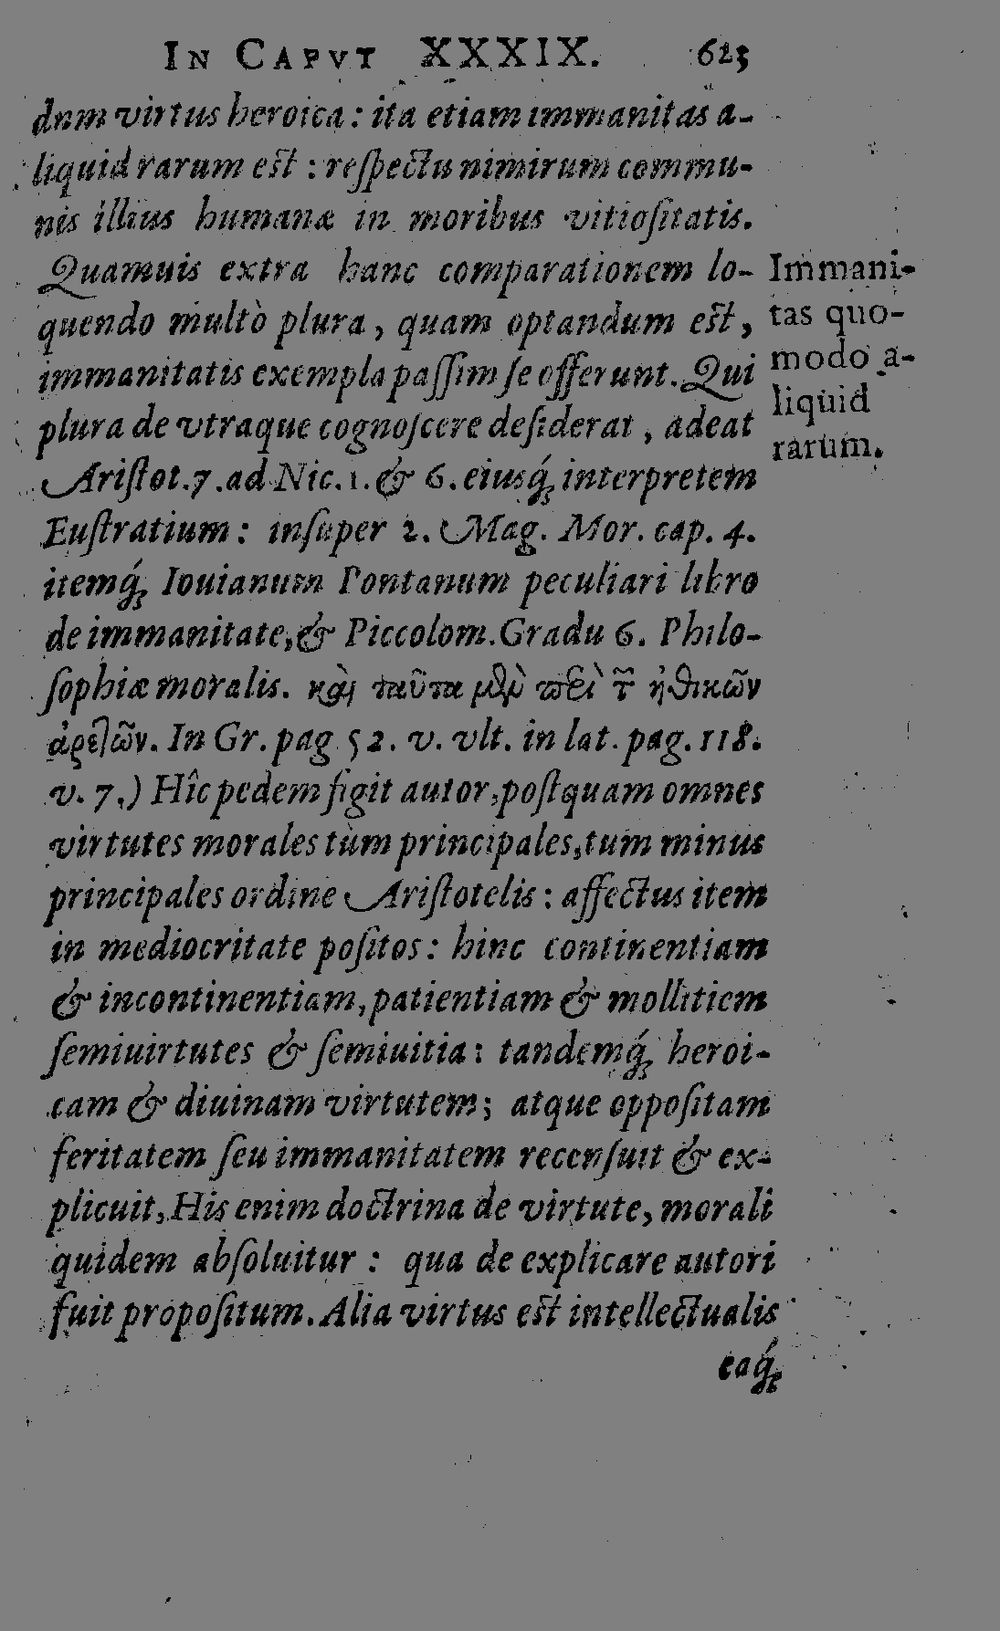 IN CAPVT XXXIX. 623
dum virtus heroica: ita etiam immanitas a-
liquid rarum est: reſpectu nimirum commu-
nis illius humanæ in moribus vitioſitatis.
Quamuis extra hanc comparationem lo-
quendo multò plura, quam optandum est,
immanitatis exempla paſſim ſe offerunt. Qui
plura de vtraque cognoſcere deſiderat, adeat
Ariſtot. 7. ad Nic. 1. & 6. eiusq́; interpretem
Euſtratium: inſuper 2. Mag. Mor. cap. 4.
itemq́; Iouianum Pontanum peculiari libro
de immanitate, & Piccolom. Gradu 6. Philo-
ſophiæ moralis. καὶ ταῦτα μὲν περὶ τ̃ ἠθικῶν
ἀρετῶν. In Gr. pag 52. v. vlt. in lat. pag. 118.
v. 7.) Hîc pedem figit autor, poſtquam omnes
virtutes morales tùm principales, tum minus
principales ordine Ariſtotelis: affectus item
in mediocritate poſitos: hinc continentiam
& incontinentiam, patientiam & mollitiem
ſemiuirtutes & ſemiuitia: tandemq́; heroi-
cam & diuinam virtutem; atque oppoſitam
feritatem ſeu immanitatem recenſuit & ex-
plicuit, His enim doctrina de virtute, morali
quidem abſoluitur: qua de explicare autori
fuit propoſitum. Alia virtus est intellectualis
eaq́;
Immani-
tas quo-
modo a-
liquid
rarum.